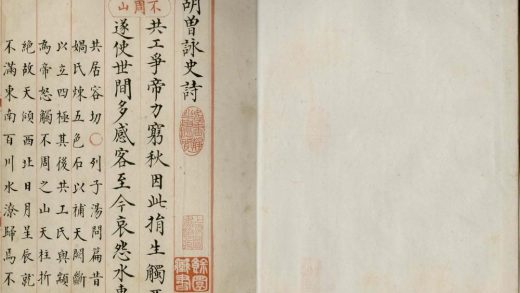 胡曾詠史詩
不周山
共工爭帝力窮秋因此捐生觸
遂使世間多感客至今哀怨水
共居容切〇列子湯問篇昔
媧氏煉五色石以補天闕斷
以立四極其後共工氏與顓
為帝怒觸不周之山天柱折
絶故天傾西北日月星辰就
不滿東南百川水潦歸焉不
藏書